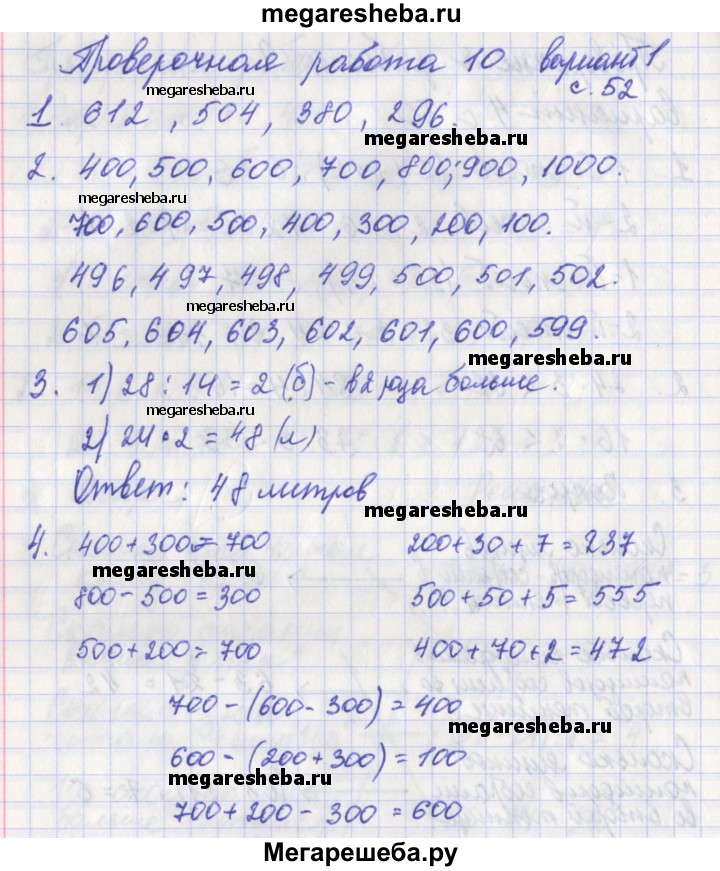 megaresheba.ru
Проверочная работа 10 вариант 1
с. 52
megaresheba.ru
1. 612, 504, 380, 296.
megaresheba.ru
2. 400, 500, 600, 700, 800, 900, 1000.
megaresheba.ru
700, 600, 500, 400, 300, 200, 100.
496, 497, 498, 499, 500, 501, 502.
megaresheba.ru
605, 604, 603, 602, 601, 600, 599.
megaresheba.ru
3. 1) 28 : 14 = 2 (б) - в 2 раза больше.
megaresheba.ru
2) 24 • 2 = 48 (л)
Ответ: 48 литров
megaresheba.ru
4. 400 + 300 = 700 200 + 30 + 7 = 237
megaresheba.ru
800 - 500 = 300 500 + 50 + 5 = 555
500 + 200 = 700 400 + 70 + 2 = 472
700 - (600 - 300) = 400
megaresheba.ru
600 - (200 + 300) = 100
megaresheba.ru
700 + 200 - 300 = 600
Мегарешеба.ру